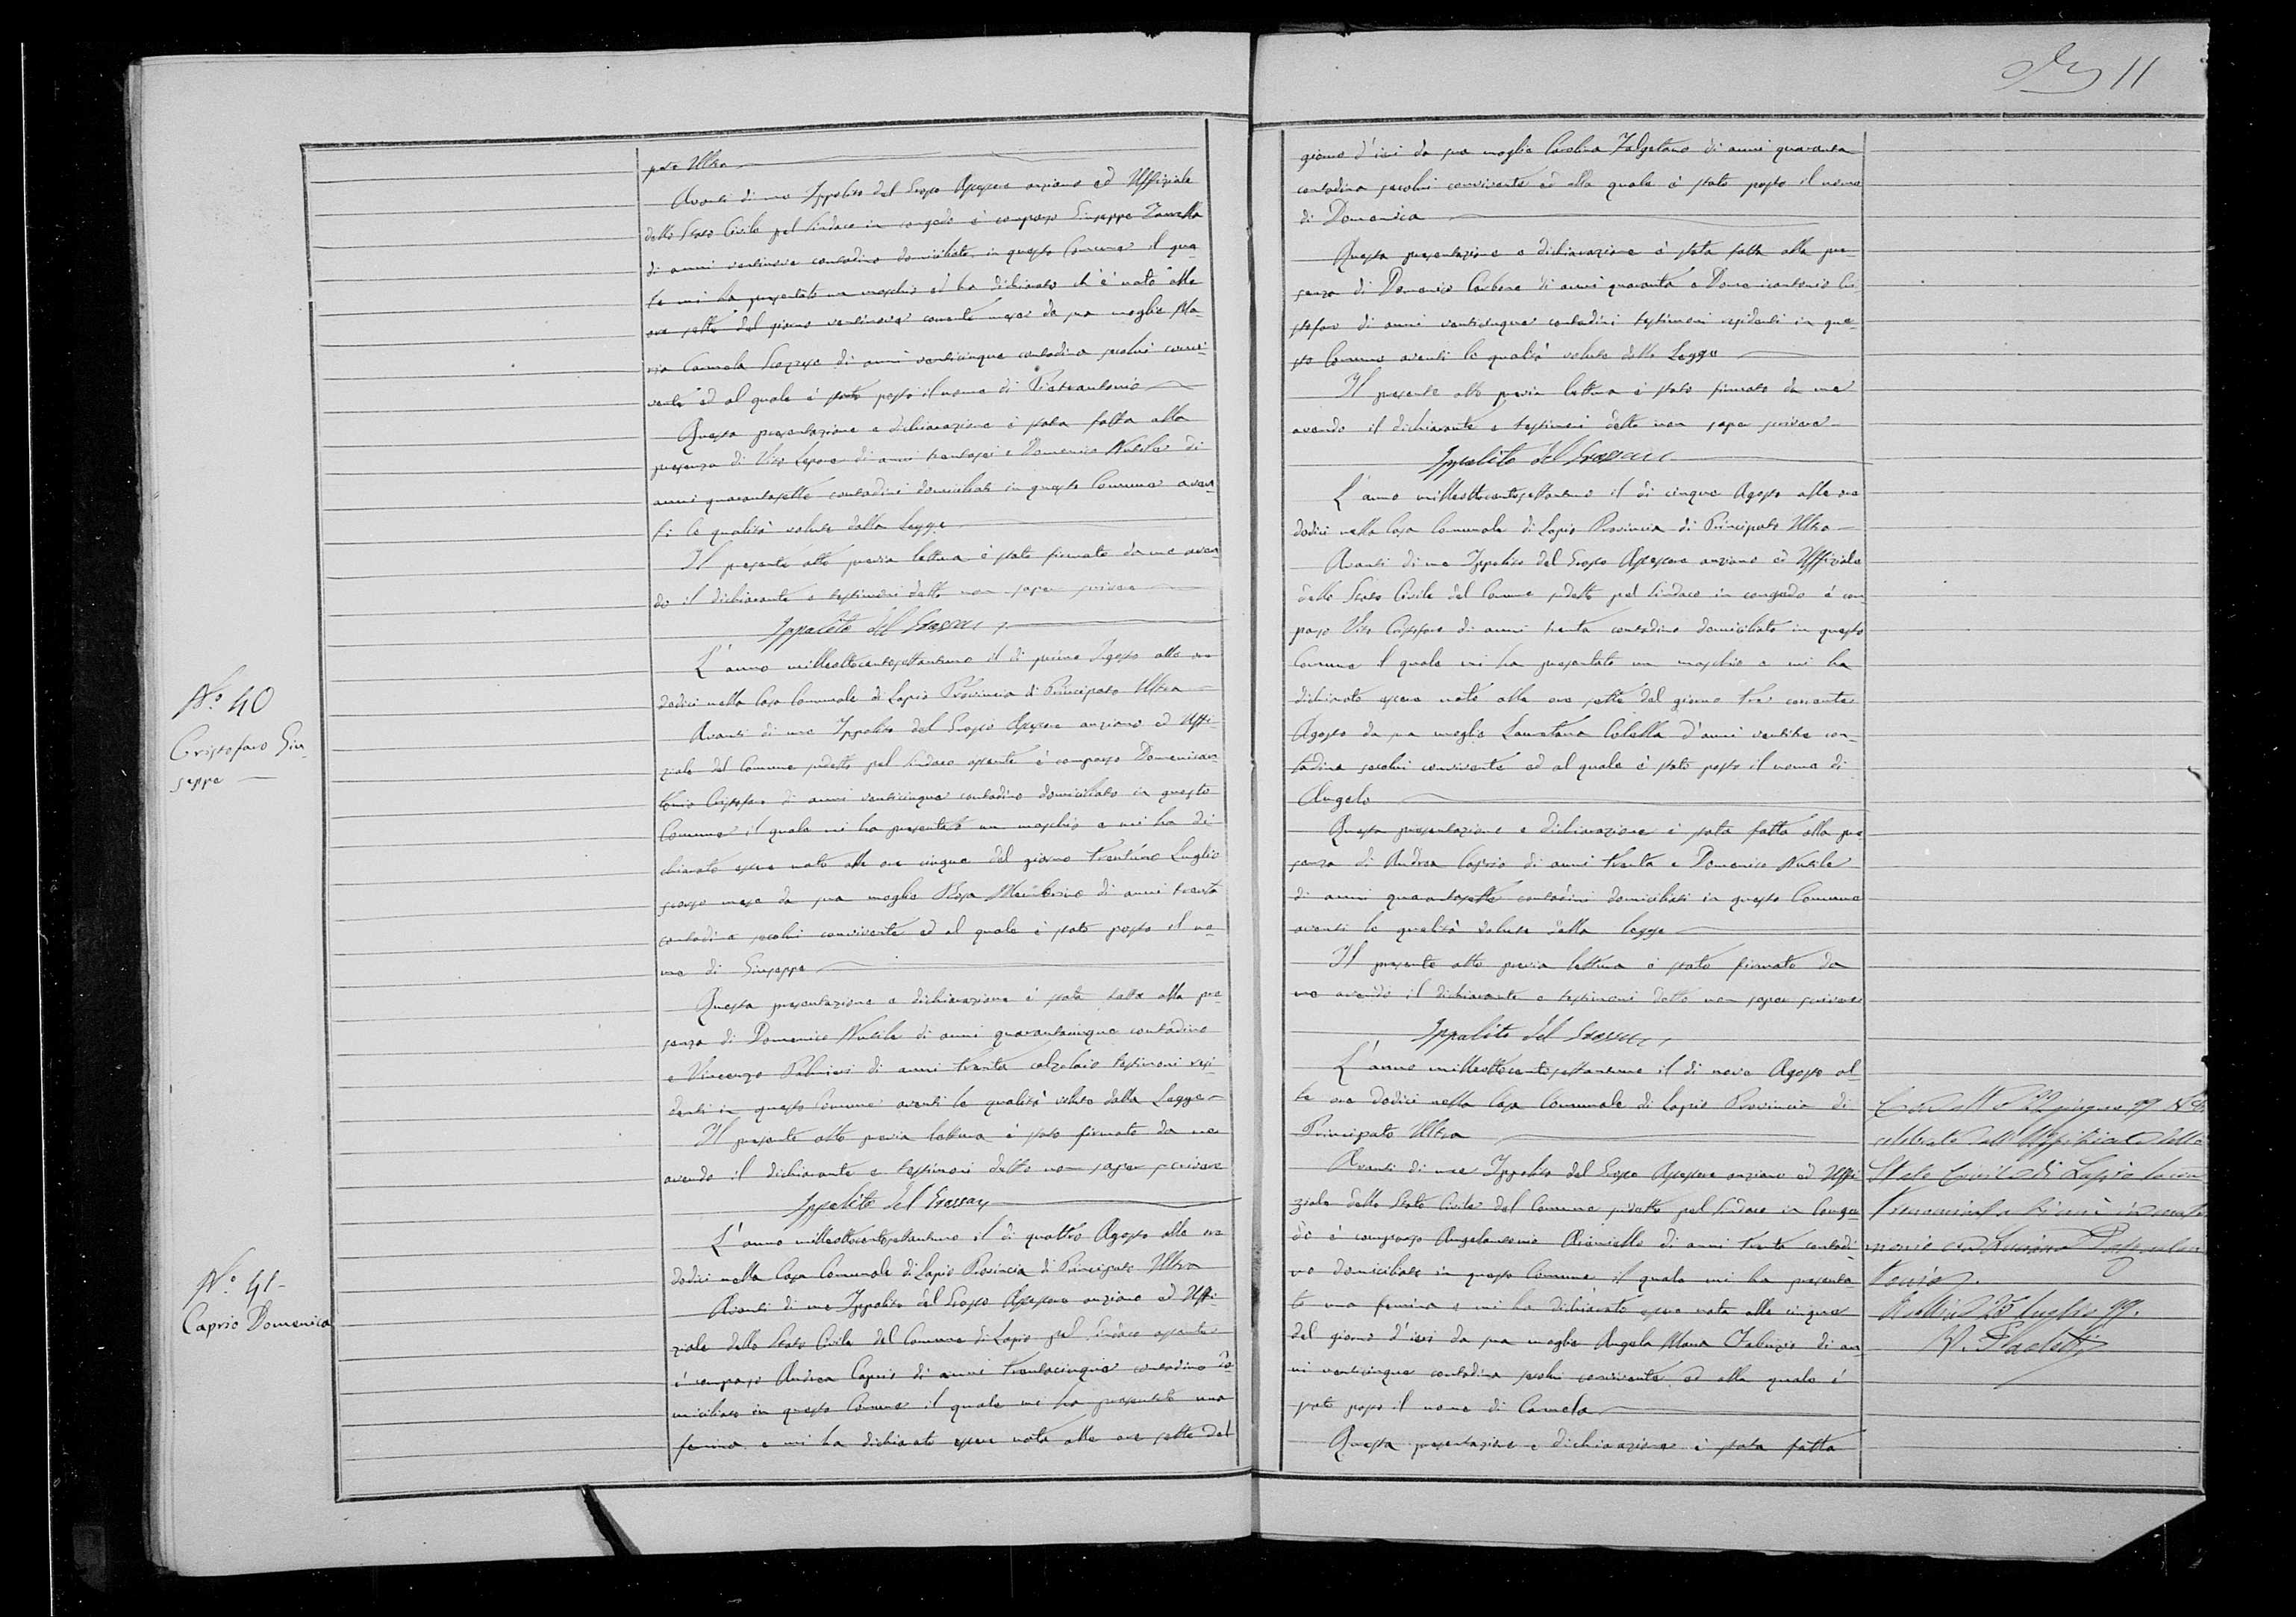 pato Ultra
Avanti di me Ippolito del Grosso Assessore anziano ed Uffiziale
dello Stato Civile pel Sindaco in congedo è comparso Giuseppe
di anni ventinove contadino domiciliato in questo Comune il qua
le mi ha presentato un maschio ed ha dichiarato ch'è nato alle
ore sette del giorno ventinove corrente mese da sua moglie Ma-
ria Carmela di anni venticinque contadina secolui convi-
vente ed al quale è stato posto il nome di Pietrantonio
Questa presentazione e dichiarazione è stata fatta alla
presenza di Vito Lepore di anni trentasei e Domenico Nutile di
anni quarantasette contadini domiciliati in questo Comune aven-
ti le qualità volute dalla Legge
Il presente atto previa lettura è stato firmato da me aven
do il dichiarante e testimoni detto non saper scrivere
Ippolito del Grosso
L'anno milleottocentosettantuno il dì primo Agosto alle ore
dodici nella Casa Comunale di Lapio Provincia di Principato Ultra
Nº. 40
Cristofaro Giu
seppe
Avanti di me Ippolito del Grosso Assessore anziano ed Uffi
ziale del Comune sudetto pel Sindaco assente è comparso Domenican
tonio Cristofaro di anni venticinque contadino domiciliato in questo
Comune il quale mi ha presentato un maschio e mi ha di
chiarato essere nato alle ore cinque del giorno trentuno Luglio
scorso mese da sua moglie Rosa di anni trenta
contadina secolui convivente ed al quale è stato posto il no-
me di Giuseppe
Questa presentazione e dichiarazione è stata fatta alla pre-
senza di Domenico Nutile di anni quarantacinque contadino
e Vincenzo Palmieri di anni trenta calzolaio testimoni resi-
denti in questo Comune aventi le qualità volute dalla Legge
Il presente atto previa lettura è stato firmato da me
avendo il dichiarante e testimoni detto non saper scrivere
Ippolito del Grosso
L'anno milleottocentosettantuno il dì quattro Agosto alle ore
dodici nella Casa Comunale di Lapio Provincia di Principato Ultra
Nº. 41-
Caprio Domenica
Avanti di me Ippolito del Grosso Assessore anziano ed Uffi-
ziale dello Stato Civile del Comune di Lapio pel Sindaco assente
è comparso Andrea Caprio di anni trentacinque contadino do-
miciliato in questo Comune il quale mi ha presentato una
femina e mi ha dichiarato essere nata alle ore sette del
11
giorno d'ieri da sua moglie Carolina di anni quaranta
contadina secolui convivente ed alla quale è stato posto il nome
di Domenica
Questa presentazione e dichiarazione è stata fatta alla pre-
senza di Domenico Carbone di anni quaranta e Domenicantonio Cri-
stofaro di anni venticinque contadini testimoni residenti in que-
sto Comune aventi le qualità volute dalla Legge
Il presente atto previa lettura è stato firmato da me
avendo il dichiarante e testimoni detto non saper scrivere
Ippolito del Grosso
L'anno milleottocentosettantuno il dì cinque Agosto alle ore
dodici nella Casa Comunale di Lapio Provincia di Principato Ultra
Avanti di me Ippolito del Grosso Assessore anziano ed Uffiziale
dello Stato Civile del Comune sudetto pel Sindaco in congedo è com
parso Vito Cristofaro di anni trenta contadino domiciliato in questo
Comune il quale mi ha presentato un maschio e mi ha
dichiarato essere nato alle ore sette del giorno tre corrente
Agosto da sua moglie Lauretana Colella d'anni ventitre con-
tadina secolui convivente ed al quale è stato posto il nome di
Angelo
Questa presentazione e dichiarazione è stata fatta alla pre
senza di Andrea Caprio di anni trenta e Domenico Nutile
di anni quarantasette contadini domiciliati in questo Comune
aventi le qualità volute dalla legge
Il presente atto previa lettura è stato firmato da
me avendo il dichiarante e testimoni detto non saper scrivere
Ippolito del Grosso
L'anno milleottocentosettantuno il dì nove Agosto al-
le ore dodici nella Casa Comunale di Lapio Provincia di
Principato Ultra
Avanti di me Ippolito del Grosso Assessore anziano ed Uffi
ziale dello Stato Civile del Comune sudetto pel Sindaco in Conge
do è comparso Angelantonio di anni trenta contadi-
no domiciliato in questo Comune il quale mi ha presenta-
to una femina e mi ha dichiarato essere nata alle cinque
del giorno d'ieri da sua moglie Angela Maria Fabrizio di an
ni venticinque contadina secolui convivente ed alla quale è
stato posto il nome di Carmela
Questa presentazione e dichiarazione è stata fatta
celebrato dall'Uffiziale dello
Stato Civile di Lapio
25 luglio 99.